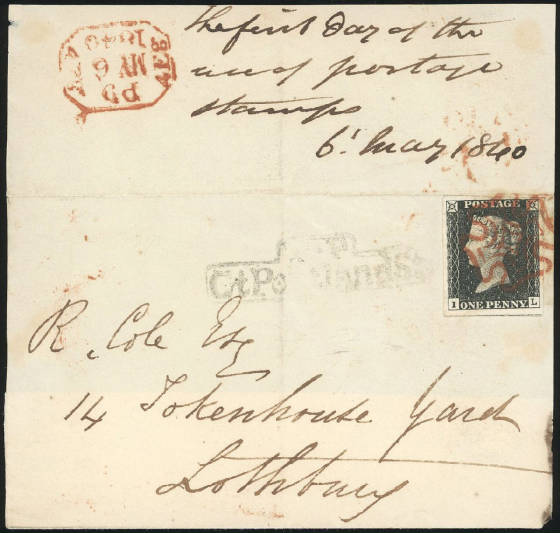 the first Day of the
use of postage
stamps
6' May 1840
PD
MY 6
1840
POSTAGE
I ONE PENNY. L
Gt Portland St
R. Cole Esq
14 Tokenhouse Yard
Lothbury